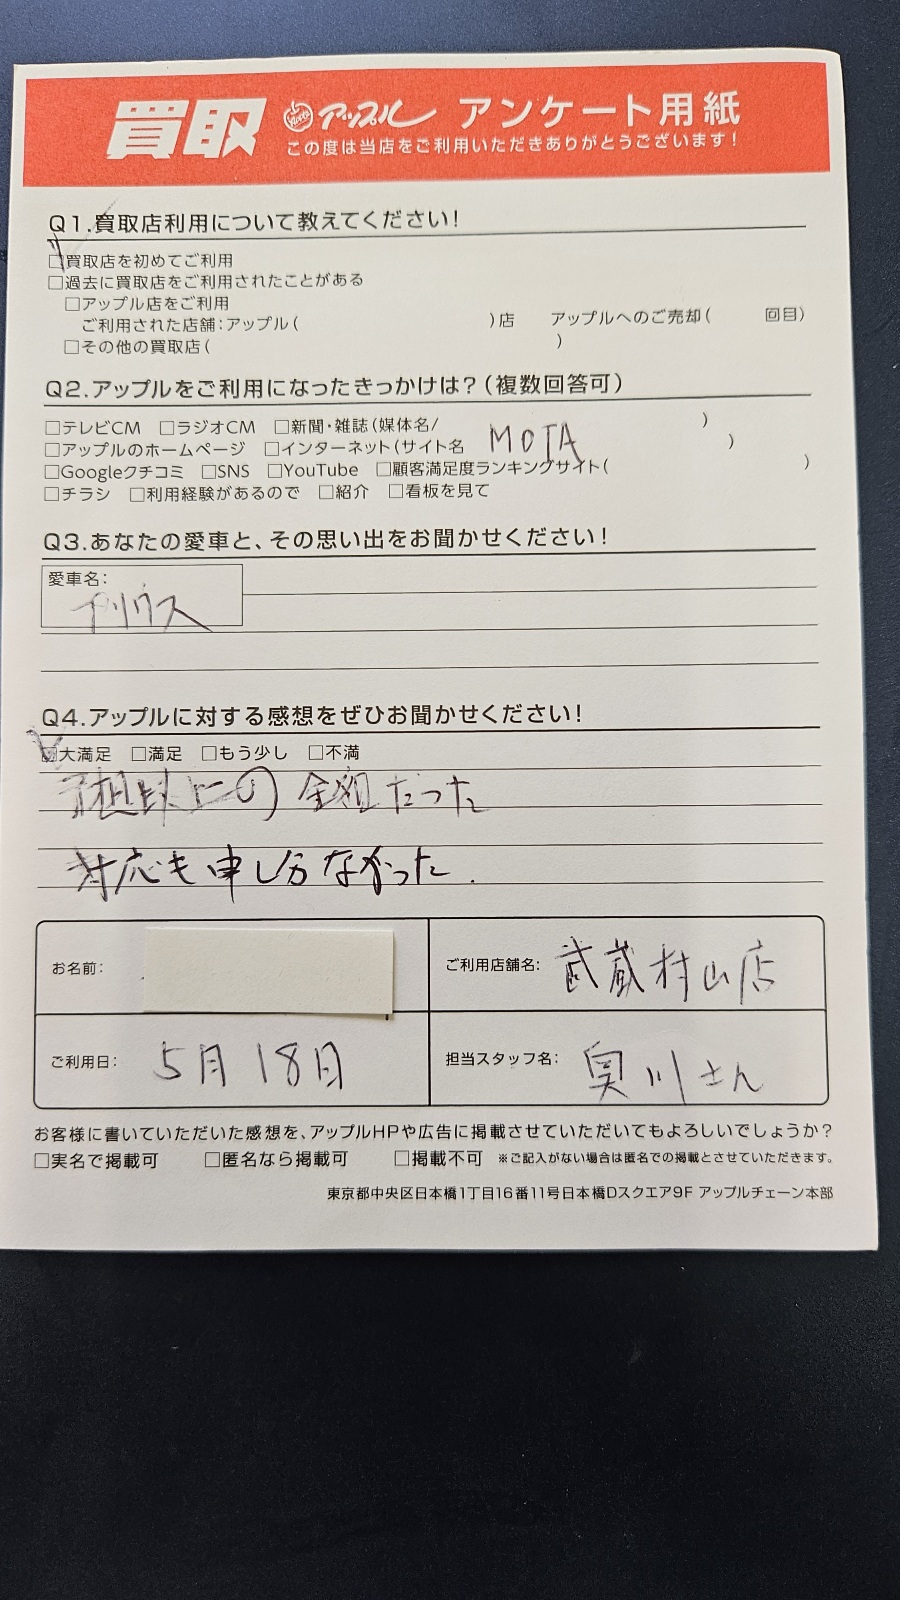 買取 アップル アンケート用紙
この度は当店をご利用いただきありがとうございます!
Q1.買取店利用について教えてください!
☑買取店を初めてご利用
□過去に買取店をご利用されたことがある
□アップル店をご利用
ご利用された店舗:アップル( )店 アップルへのご売却( 回目)
□その他の買取店( )
Q2.アップルをご利用になったきっかけは?(複数回答可)
□テレビCM □ラジオCM □新聞・雑誌(媒体名/ )
□アップルのホームページ □インターネット(サイト名 MOTA )
□Googleクチコミ □SNS □YouTube □顧客満足度ランキングサイト( )
□チラシ □利用経験があるので □紹介 □看板を見て
Q3.あなたの愛車と、その思い出をお聞かせください!
愛車名:
プリウス
Q4.アップルに対する感想をぜひお聞かせください!
☑大満足 □満足 □もう少し □不満
予想以上の金額だった
対応も申し分なかった.
お名前:
ご利用店舗名: 武蔵村山店
ご利用日: 5月18日
担当スタッフ名: 奥川さん
お客様に書いていただいた感想を、アップルHPや広告に掲載させていただいてもよろしいでしょうか?
□実名で掲載可 □匿名なら掲載可 □掲載不可 ※ご記入がない場合は匿名での掲載とさせていただきます。
東京都中央区日本橋1丁目16番11号日本橋Dスクエア9F アップルチェーン本部